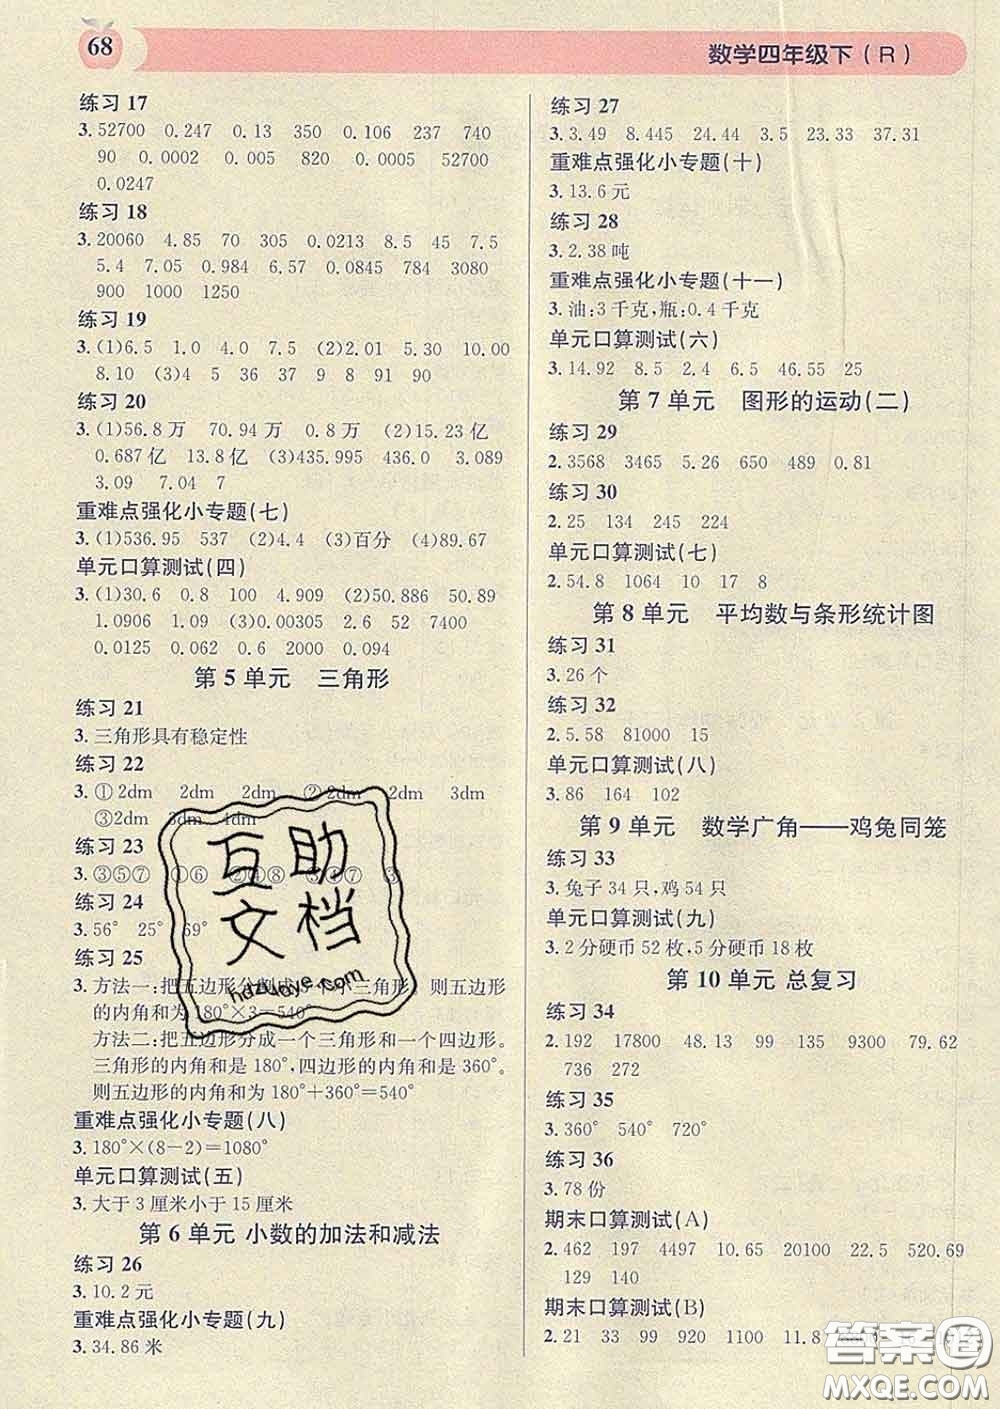 68
数学四年级下(R)
练习 17
3. 52700 0.247 0.13 350 0.106 237 740
90 0.0002 0.005 820 0.0005 52700
0.0247
练习 18
3. 20060 4.85 70 305 0.0213 8.5 45 7.5
5.4 7.05 0.984 6.57 0.0845 784 3080
900 1000 1250
练习 19
3. (1)6.5 1.0 4.0 7.5 (2)2.01 5.30 10.00
8.10 (3)4 5 36 37 9 90 91 90
练习 20
3. (1)56.8 万 70.94 万 0.8 万 (2)15.23 亿
0.687亿 13.8 亿 (3)435.995 436.0 3.089
3.09 7.04 7
重难点强化小专题(七)
3. (1)536.95 537 (2)4.4 (3)百分 (4)89.67
单元口算测试(四)
3. (1)30.6 0.8 100 4.909 (2)50.886 50.89
1.0906 1.09 (3)0.00305 2.6 52 7400
0.0125 0.062 0.6 2000 0.094
第 5 单元 三角形
练习 21
3. 三角形具有稳定性
练习 22
3. ①2dm 2dm 2dm ②2dm 2dm 3dm
③2dm 3dm 4dm
练习 23
3. ③⑤⑦ ①⑥ ②④⑧ ①③⑦ ⑤
练习 24
3. 56° 25° 69°
练习 25
3. 方法一:把五边形分割成三个小三角形, 则五边形
的内角和为180°×3=540°
方法二:把五边形分成一个三角形和一个四边形。
三角形的内角和是 180°,四边形的内角和是 360°。
则五边形的内角和为 180°+360°=540°
重难点强化小专题(八)
3. 180°×(8-2)=1080°
单元口算测试(五)
3. 大于 3 厘米小于 15 厘米
第 6 单元 小数的加法和减法
练习 26
3. 10.2 元
重难点强化小专题(九)
3. 34.86 米
练习 27
3. 3.49 8.445 24.44 3.5 23.33 37.31
重难点强化小专题(十)
3. 13.6 元
练习 28
3. 2.38 吨
重难点强化小专题(十一)
3. 油:3 千克,瓶:0.4 千克
单元口算测试(六)
3. 14.92 8.5 2.4 6.5 46.55 25
第 7 单元 图形的运动(二)
练习 29
2. 3568 3465 5.26 650 489 0.81
练习 30
2. 25 134 245 224
单元口算测试(七)
2. 54.8 1064 10 17 8
第 8 单元 平均数与条形统计图
练习 31
3. 26 个
练习 32
2. 5.58 81000 15
单元口算测试(八)
3. 86 164 102
第 9 单元 数学广角——鸡兔同笼
练习 33
3. 兔子 34 只,鸡 54 只
单元口算测试(九)
3. 2 分硬币 52 枚,5 分硬币 18 枚
第 10 单元 总复习
练习 34
2. 192 17800 48.13 99 135 9300 79.62
736 272
练习 35
3. 360° 540° 720°
练习 36
3. 78 份
期末口算测试(A)
2. 462 197 4497 10.65 20100 22.5 520.69
129 140
期末口算测试(B)
2. 21 33 99 920 1100 11.8
互助
文档
hdzuoye.com
答案圈
MXQE.COM